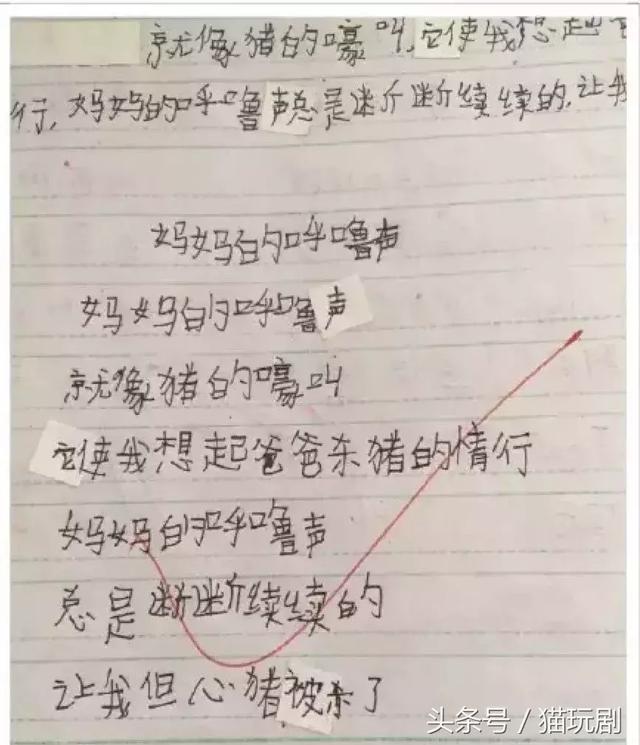 京尤像猪的嚎叫,它使我想起
行,妈妈的呼噜声总是断断续续的,让我
妈妈的呼噜声
妈妈的呼噜声
京尤像猪的嚎叫
它使我想起爸爸杀猪的情行
妈妈的呼噜声
总是断断续续的
让我但心猪被杀了
头条号 / 猫玩剧